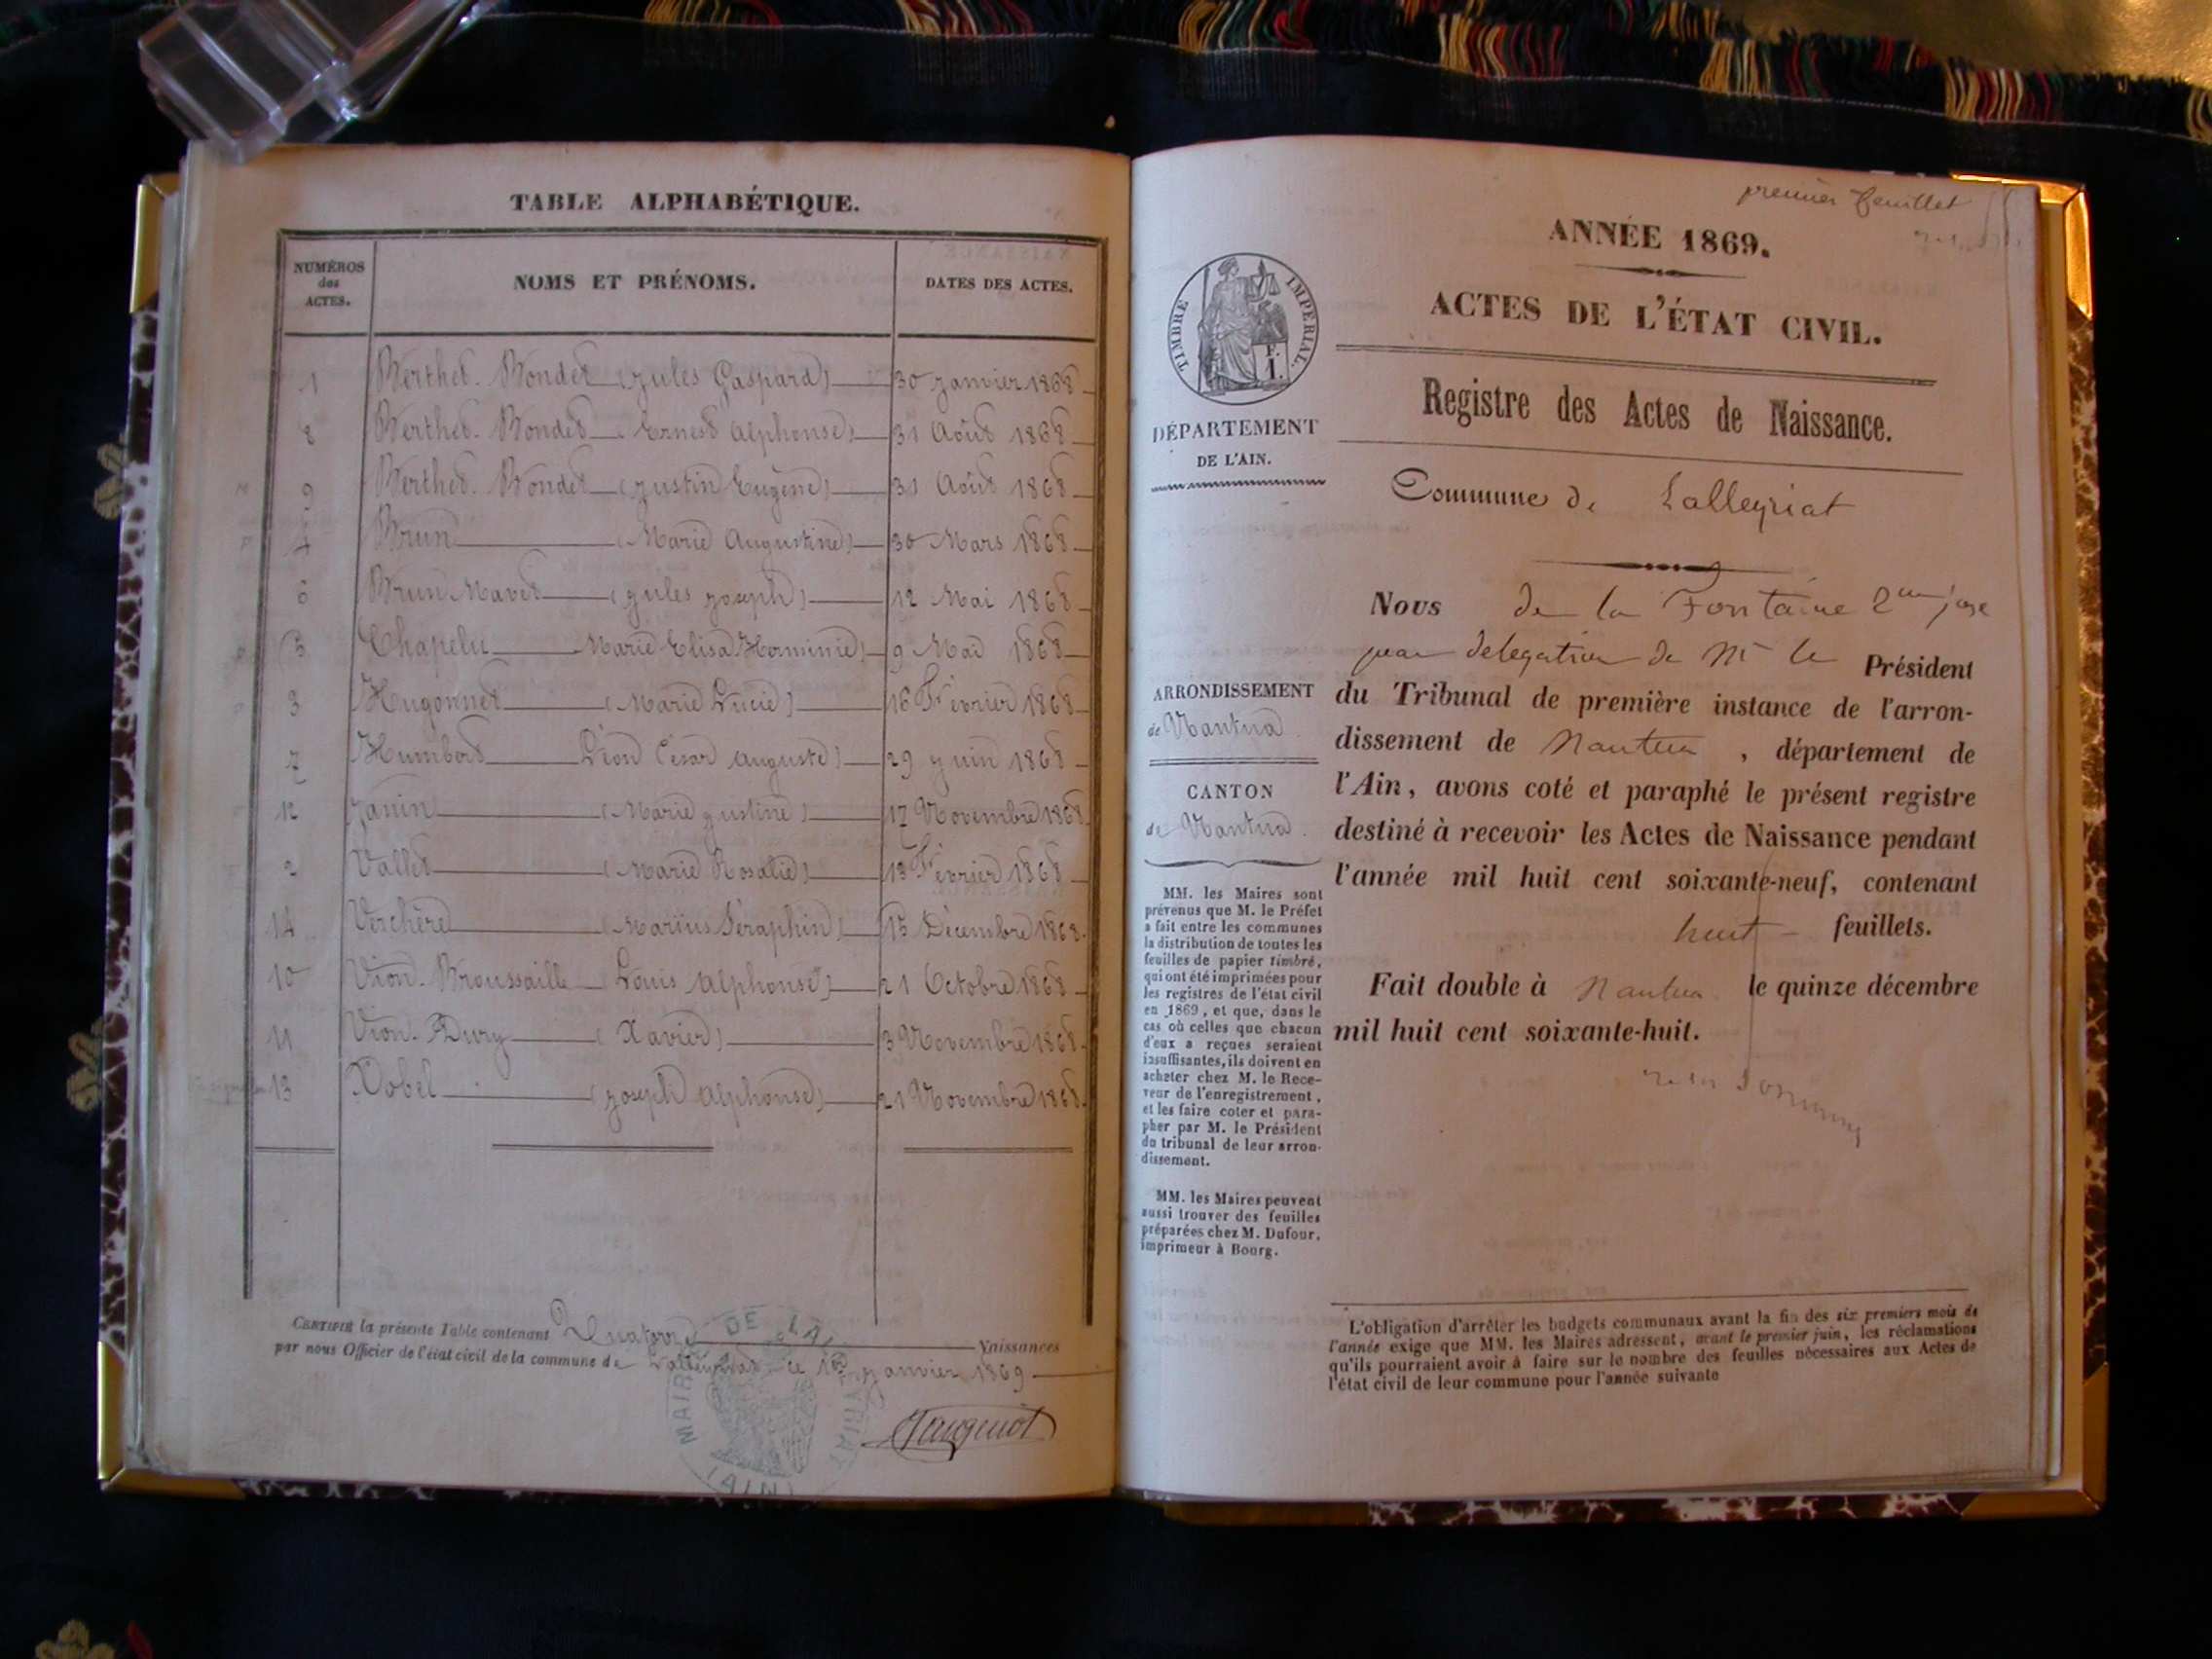 TABLE ALPHABÉTIQUE.
NUMÉROS des ACTES.
NOMS ET PRÉNOMS.
DATES DES ACTES.
1 Berthet-Bondet (Jules Gaspard) 30 Janvier 1868
8 Berthet-Bondet (Ernest Alphonse) 31 Août 1868
9 Berthet-Bondet (Justin Eugène) 31 Août 1868
4 Brun (Marie Augustine) 30 Mars 1868
6 Brun Mavet (Jules Joseph) 12 Mai 1868
5 Chapelu Marie Elisa Herminie) 9 Mai 1868
3 Hugonnet (Marie Lucie) 16 Février 1868
7 Humbert Léon César Auguste) 29 Juin 1868
12 Janin (Marie Justine) 17 Novembre 1868
2 Vallet (Marie Rosalie) 13 Février 1868
14 Verchère (Marius Séraphin) 15 Décembre 1868
10 Vion-Broussaille (Louis Alphonse) 21 Octobre 1868
11 Vion-Dury (Xavier) 3 Novembre 1868
13 Xobel (Joseph Alphonse) 21 Novembre 1868
CERTIFIÉ la présente Table contenant Quatorze Naissances
par nous Officier de l'état civil de la commune de Lalleyriat le 1er Janvier 1869
MAIRIE DE LALLEYRIAT (AIN)
premier feuillet
ANNÉE 1869.
ACTES DE L'ÉTAT CIVIL.
TIMBRE IMPÉRIAL.
F.
1.
Registre des Actes de Naissance.
DÉPARTEMENT
DE L'AIN.
Commune de Lalleyriat
Nous de la Fontaine 2me juge
par delegation de Mr le Président
du Tribunal de première instance de l'arron-
dissement de Nantua, département de
l'Ain, avons coté et paraphé le présent registre
destiné à recevoir les Actes de Naissance pendant
l'année mil huit cent soixante-neuf, contenant
huit feuillets.
Fait double à Nantua le quinze décembre
mil huit cent soixante-huit.
ARRONDISSEMENT
de Nantua
CANTON
de Nantua.
MM. les Maires sont
prévenus que M. le Préfet
a fait entre les communes
la distribution de toutes les
feuilles de papier timbré,
qui ont été imprimées pour
les registres de l'état civil
en 1869, et que, dans le
cas où celles que chacun
d'eux a reçues seraient
insuffisantes, ils doivent en
acheter chez M. le Rece-
veur de l'enregistrement,
et les faire coter et para-
pher par M. le Président
du tribunal de leur arron-
dissement.
MM. les Maires peuvent
aussi trouver des feuilles
préparées chez M. Dufour,
imprimeur à Bourg.
L'obligation d'arrêter les budgets communaux avant la fin des six premiers mois de
l'année exige que MM. les Maires adressent, avant le premier juin, les réclamations
qu'ils pourraient avoir à faire sur le nombre des feuilles nécessaires aux Actes de
l'état civil de leur commune pour l'année suivante